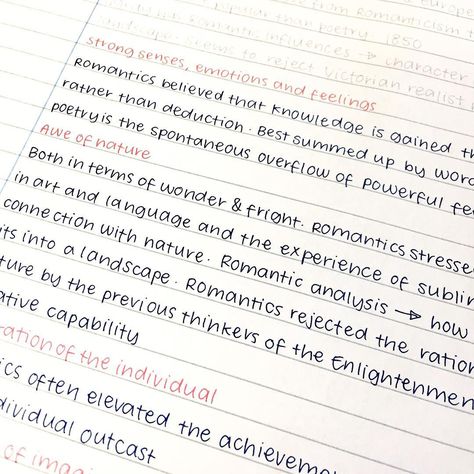 popular than poetry. 1850
Romantic influences → character
seems to reject Victorian realist
strong senses, emotions and feelings
Romantics believed that knowledge is gained th
rather than deduction. Best summed up by Word
poetry is the spontaneous overflow of powerful fee
Awe of nature
Both in terms of wonder & fright. Romantics stresse
in art and language and the experience of sublim
connection with nature. Romantic analysis → how
its into a landscape. Romantics rejected the ration
ture by the previous thinkers of the Enlightenmen
ative capability
ration of the individual
ics often elevated the achievem
dividual outcast
of imag